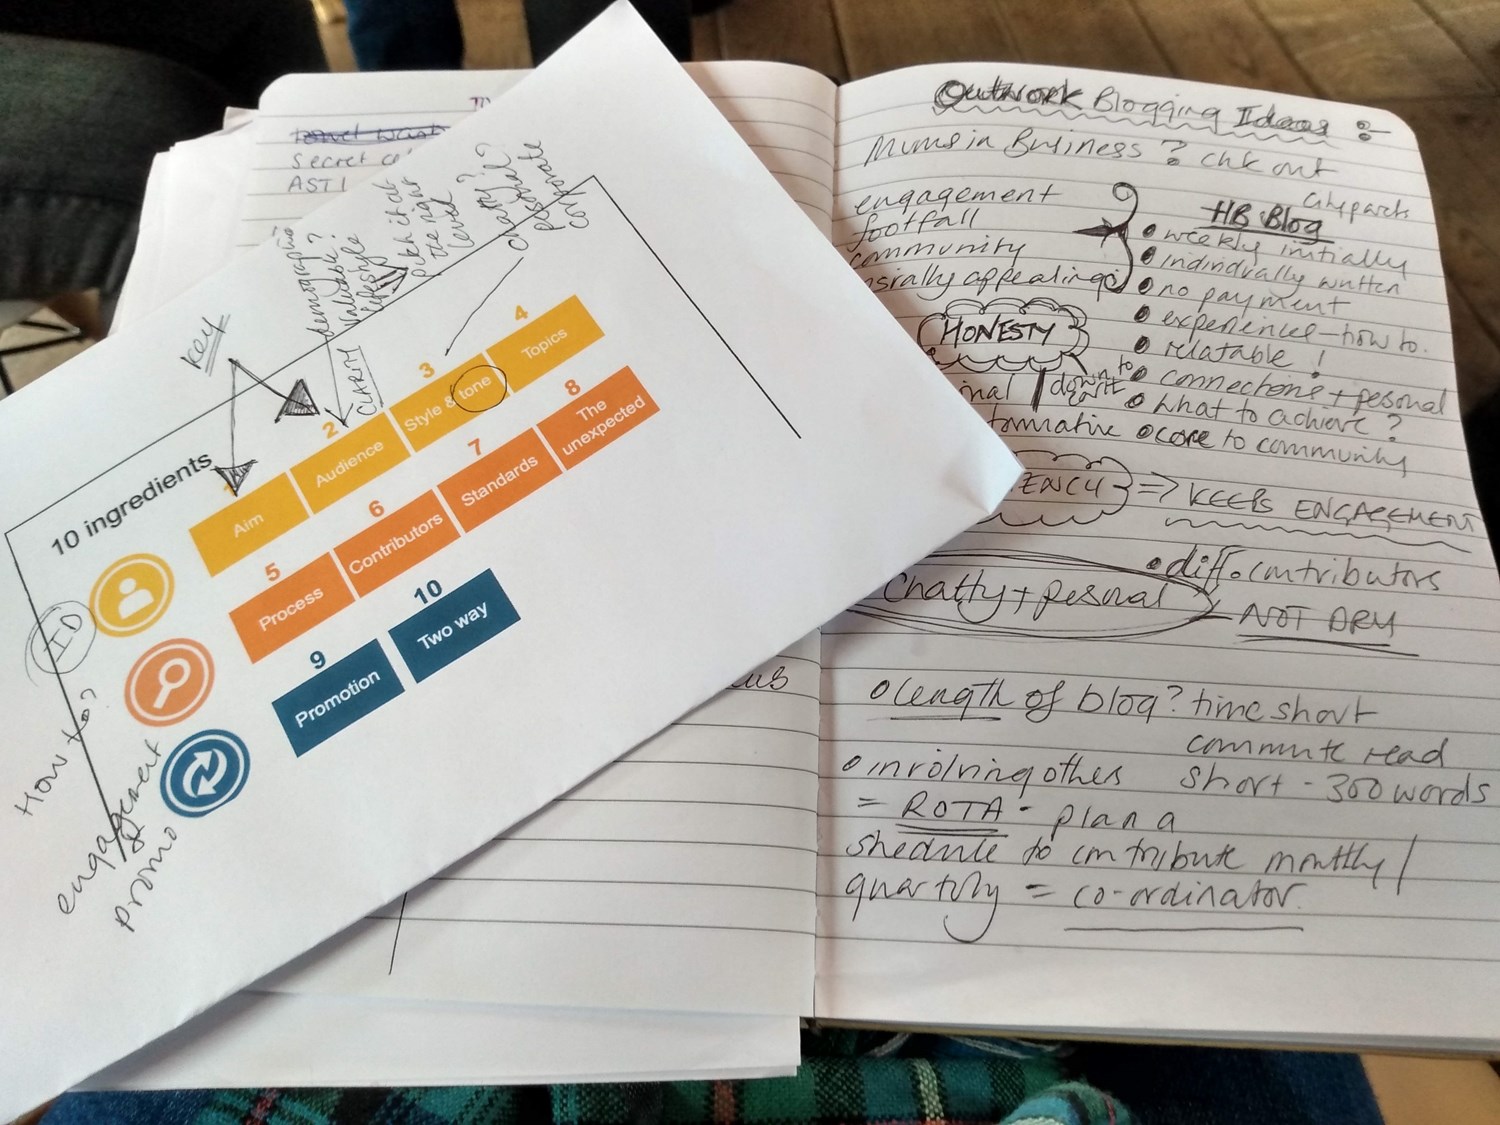 secret
AST
KEY
demographic?
Valuable?
lifestyle
pitch it at
the right
level
CLARITY
Chatty?
personal?
corporate
10 ingredients
1
Aim
2
Audience
3
Style & tone
4
Topics
5
Process
6
Contributors
7
Standards
8
The
unexpected
9
Promotion
10
Two way
ID
How to?
engagement
&
promo
Outwork Blogging Ideas :-
Mums in Business ? chk out
engagement
footfall
community
appealing
HONESTY
down to
HB Blog
• weekly initially
• individually written
• no payment
• experiences - how to.
• relatable !
• connections + pesonal
• what to achieve ?
• core to community
ENCY => KEEPS ENGAGEMENT
• diff. contributors
Chatty + pesonal - NOT DRY
o length of blog? time short
commute read
short - 300 words
o involving others
= ROTA - plan a
shedule to contribute monthly /
quartly = co-ordinator.